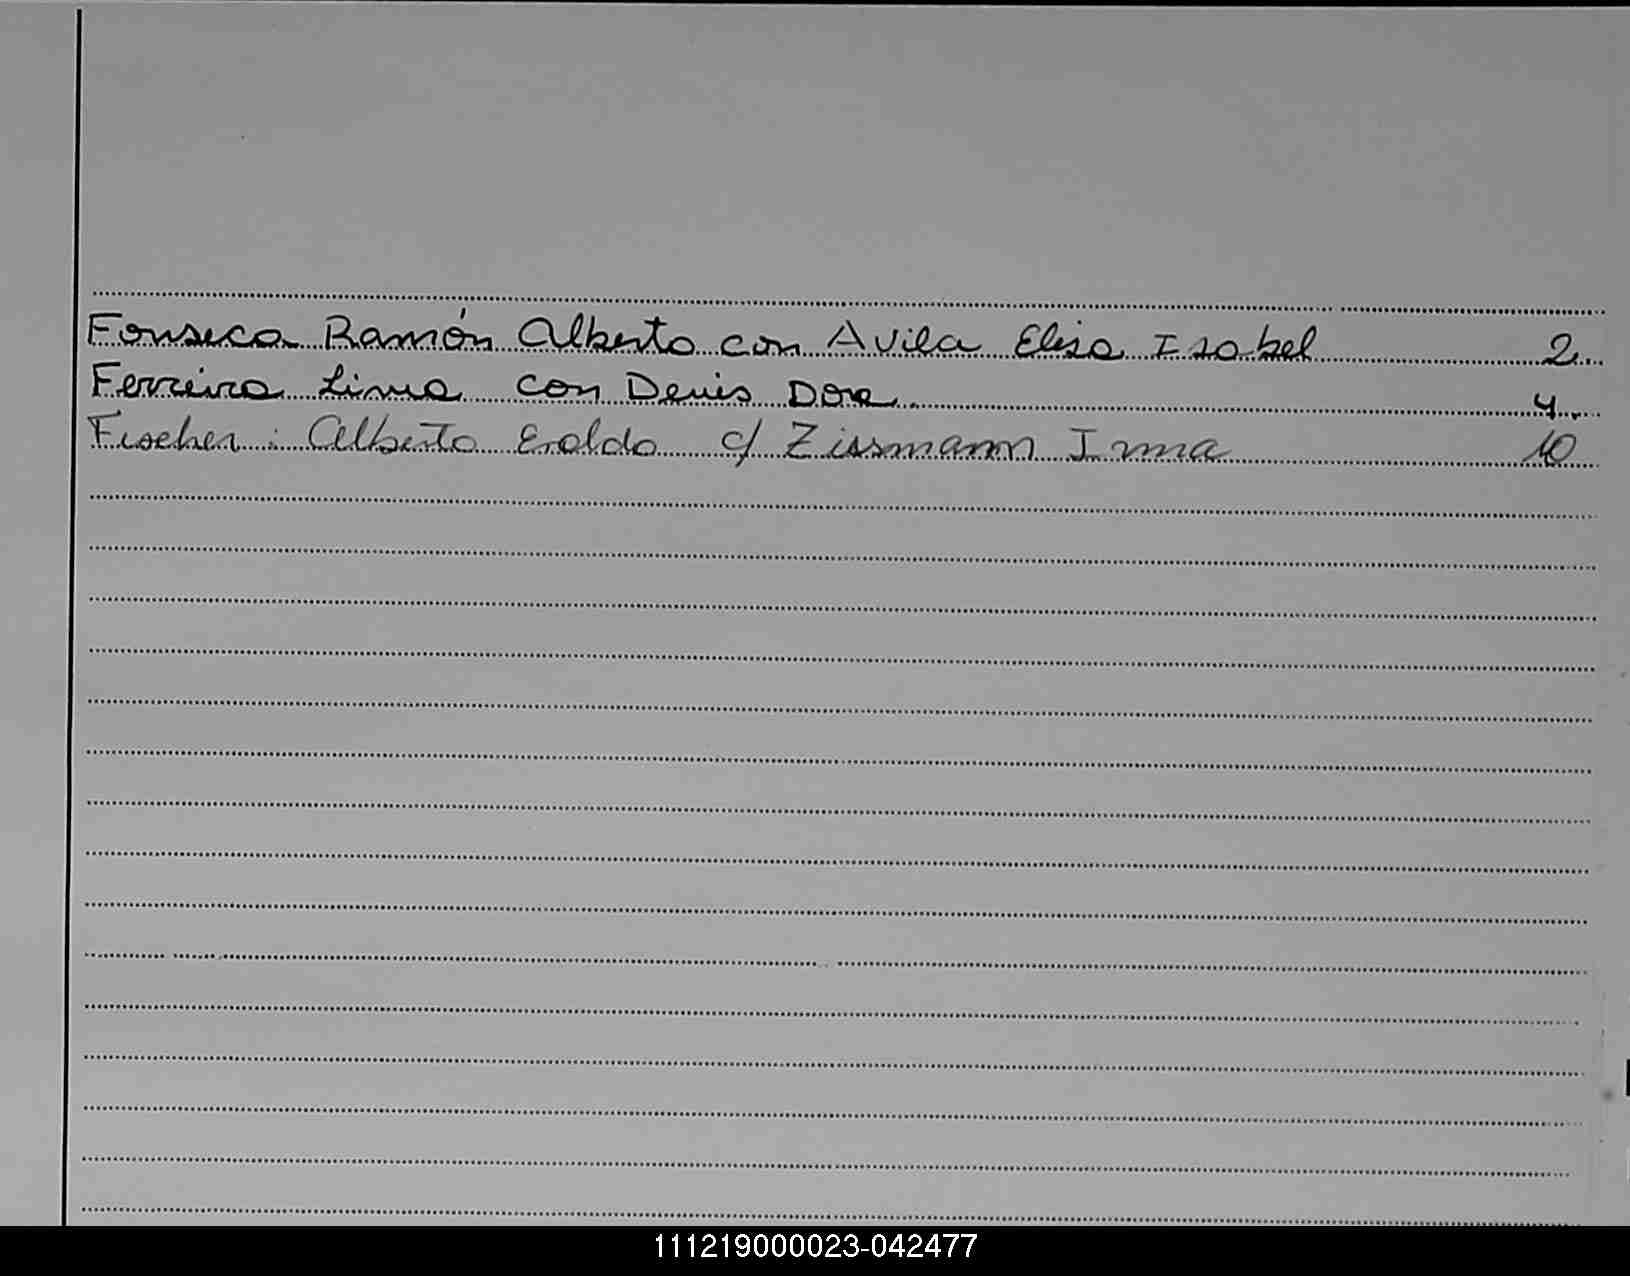 Fonseca Ramón Alberto con Avila Elisa Isabel 2
Ferreira Lima con Denis Dora 4
Fischer: Alberto Eroldo c/ Zissmann Irma 10
111219000023-042477